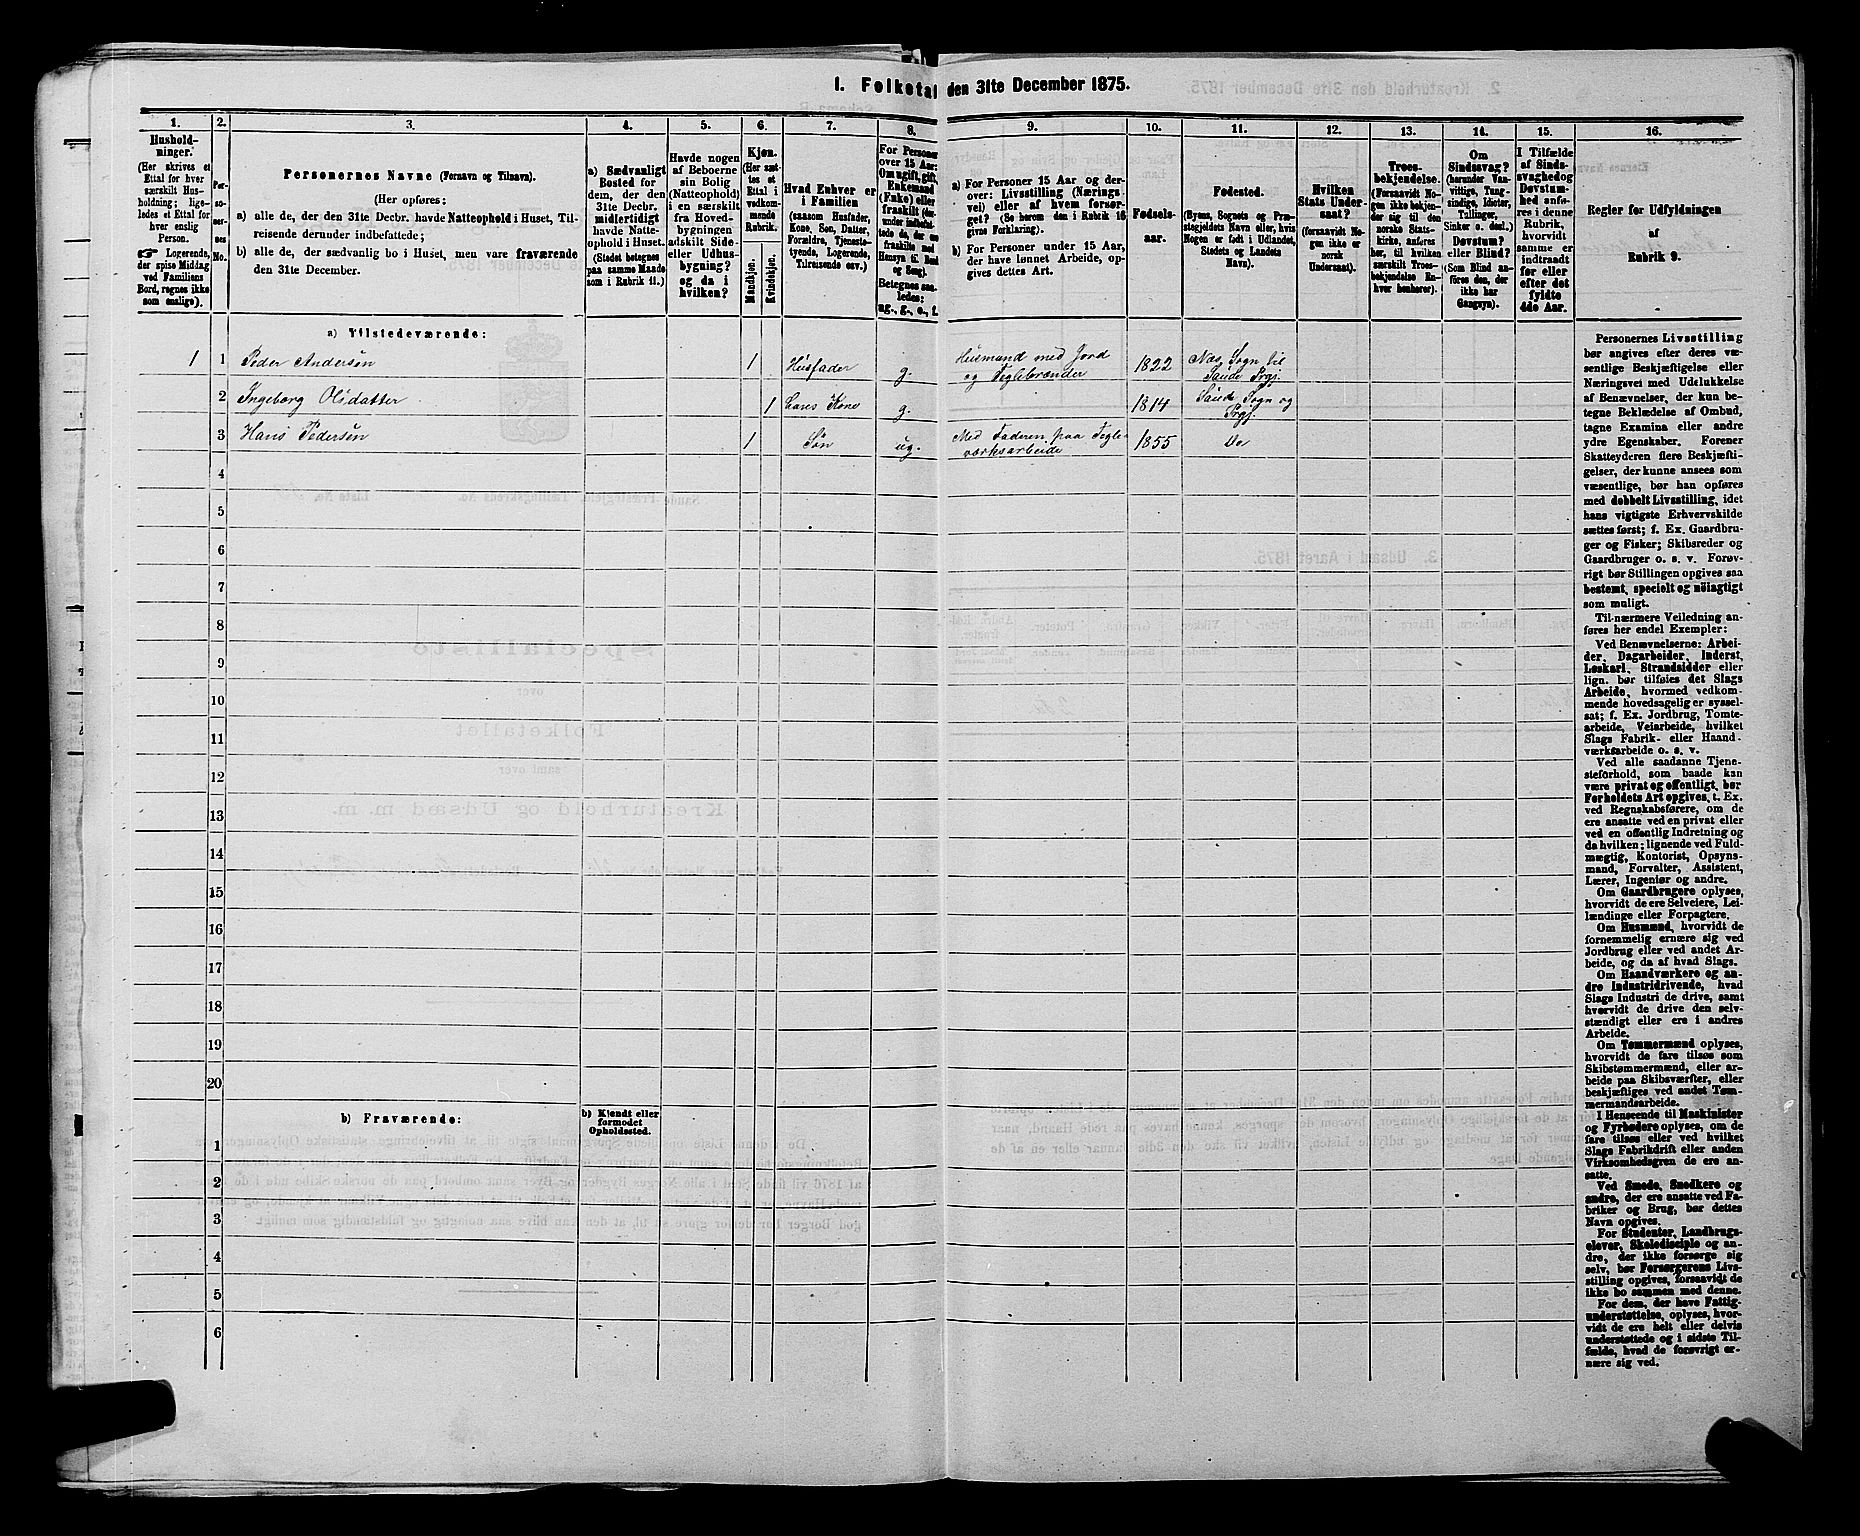 1. Folketal den 31te December 1875.
1. 2. 3. 4. 5. 6. 7. 8. 9. 10. 11. 12. 13. 14. 15. 16.
Hushold-
ninger.
(Her skrives et
Ettal for hver
særskilt Hus-
holdning; lige-
ledes et Ettal for
hver enslig
Person.
Logerende,
der spise Middag
ved Familiens
Bord, regnes ikke
som enslige).
Per-
so-
ner-
nes
No.
Personernes Navne (Fornavn og Tilnavn).
(Her opføres:
a) alle de, der den 31te Decbr. havde Natteophold i Huset, Til-
reisende derunder indbefattede;
b) alle de, der sædvanlig bo i Huset, men vare fraværende
den 31te December.
a) Sædvanligt
Bosted for
dem, der den
31te Decbr.
midlertidigt
havde Natte-
ophold i Huset.
(Stedet betegnes
paa samme Maade
som i Rubrik 11.)
Havde nogen
af Beboerne
sin Bolig
(Natteophold)
i en særskilt
fra Hoved-
bygningen
adskilt Side-
eller Udhus-
bygning?
og da i
hvilken?
Kjøn.
(Her sæt-
tes et
Ettal i
vedkom-
mende
Rubrik.
Mandkjøn.
Kvindekjøn.
Hvad Enhver er
i Familien
(saasom Husfader,
Kone, Søn, Datter,
Forældre, Tjeneste-
tyende, Logerende,
Tilreisende osv.)
For Personer
over 15 Aar:
Om ugift, gift,
Enkemand
(Enke) eller
fraskilt (der-
under indbefat-
tede de, der ere
fraskilte med
Hensyn til Bord
og Seng).
Betegnes saa-
ledes:
ug., g., e., f.
a) For Personer 15 Aar og der-
over: Livsstilling (Nærings-
vei) eller af hvem forsør-
get? (Se herom den i Rubrik 16
givne Forklaring).
b) For Personer under 15 Aar,
der have lønnet Arbeide, op-
gives dettes Art.
Fødsels-
aar.
Fødested.
(Byens, Sognets og Præ-
stegjeldets Navn eller, hvis
Nogen er født i Udlandet,
Stedets og Landets
Navn).
Hvilken
Stats Under-
saat?
(forsaavidt No-
gen ikke er
norsk
Undersaat).
Troes-
bekjendelse.
(Forsaavidt No-
gen ikke bekjen-
der sig til den
norske Stats-
kirke, anføres
her, til hvilken
særskilt Troes-
bekjendelse En-
hver henhører).
Om
Sindssvag?
(herunder Van-
vittige, Tung-
sindige, Idioter,
Tullinger,
Sinker o. desl.)
Døvstum?
eller Blind?
(Som Blind an-
føres den, der
ikke har
Gangsyn).
I Tilfælde
af Sinds-
svaghed og
Døvstum-
hed anfø-
res i denne
Rubrik,
hvorvidt
samme er
indtraadt
før eller
efter det
fyldte
4de Aar.
Regler for Udfyldningen
af
Rubrik 9.
a) Tilstedeværende:
1 1 Peder Andersen 1 Husfader g. Husmand med Jord og Teglebrænder 1822 Næs Sogn til Saude Prgj.
2 Ingeborg Olsdatter 1 hans Kone g. 1814 Saude Sogn og Prgj
3 Hans Pedersen 1 Søn ug. Med Faderen paa Tegle- værksarbeide 1855 Do
4
5
6
7
8
9
10
11
12
13
14
15
16
17
18
19
20
b) Fraværende:
b) Kjendt eller
formodet
Opholdssted.
1
2
3
4
5
6
Personernes Livsstilling
bør angives efter deres væ-
sentlige Beskjæftigelse eller
Næringsvei med Udelukkelse
af Benævnelser, der kun be-
tegne Beklædelse af Ombud,
tagne Examina eller andre
ydre Egenskaber. Forener
Skatteyderen flere Beskjæfti-
gelser, der kunne ansees som
væsentlige, bør han opføres
med dobbelt Livsstilling, idet
hans vigtigste Erhvervskilde
sættes først; f. Ex. Gaardbru-
ger og Fisker; Skibsreder og
Gaardbruger o. s. v. Forøv-
rigt bør Stillingen opgives saa
bestemt, specielt og nøiagtigt
som muligt.
Til nærmere Veiledning an-
føres her endel Exempler:
Ved Benævnelserne: Arbei-
der, Dagarbeider, Inderst,
Løskarl, Strandsidder eller
lign. bør tilføies det Slags
Arbeide, hvormed vedkom-
mende hovedsagelig er syssel-
sat; f. Ex. Jordbrug, Tomte-
arbeide, Veiarbeide, hvilket
Slags Fabrik- eller Haand-
værksarbeide o. s. v.
Ved alle saadanne Tjene-
steforhold, som baade kan
være privat og offentligt, bør
Forholdets Art opgives, t. Ex.
ved Regnskabsførere, om de
ere ansatte ved en privat eller
ved en offentlig Indretning og
da hvilken; lignende ved Fuld-
mægtig, Kontorist, Opsyns-
mand, Forvalter, Assistent,
Lærer, Ingeniør og andre.
Om Gaardbrugere oplyses,
hvorvidt de ere Selveiere, Lei-
lændinge eller Forpagtere.
Om Husmænd, hvorvidt de
fornemmelig ernære sig ved
Jordbrug eller ved andet Ar-
beide, og da af hvad Slags.
Om Haandværkere og an-
dre Industridrivende, hvad
Slags Industri de drive, samt
hvorvidt de drive den selv-
stændigt eller ere i andres
Arbeide.
Om Tømmermænd oplyses,
hvorvidt de fare tilsøs som
Skibstømmermænd, eller ar-
beide paa Skibsværfter, eller
beskjæftiges ved andet Tøm-
mermandsarbeide.
I Henseende til Maskinister
og Fyrbødere oplyses, om de
fare tilsøs eller ved hvilket
Slags Fabrikdrift eller anden
Virksomhedsgren de ere an-
satte.
Ved Smede, Snedkere og
andre, der ere ansatte ved Fa-
briker og Brug, bør dettes
Navn opgives.
For Studenter, Landbrugs-
elever, Skoledisciple og an-
dre, der ikke forsørge sig
selv, bør Forsørgerens Livs-
stilling opgives, forsaavidt de
ikke bo sammen med denne.
For dem, der have Fattig-
understøttelse, oplyses, hvor-
vidt de ere helt eller delvis
understøttede og i sidste Til-
fælde, hvad de forøvrigt er-
nære sig ved.